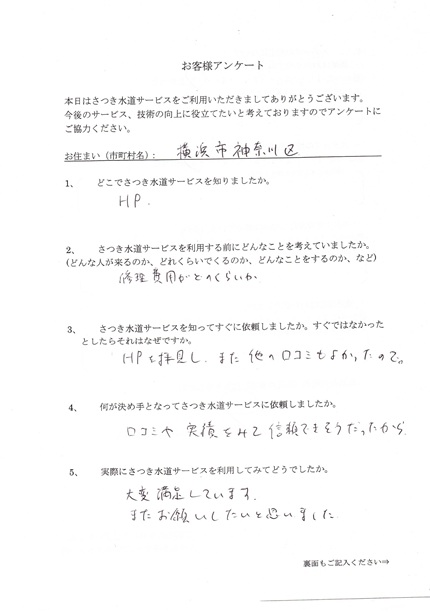 お客様アンケート
本日はさつき水道サービスをご利用いただきましてありがとうございます。
今後のサービス、技術の向上に役立てたいと考えておりますのでアンケートに
ご協力ください。
お住まい（市町村名）： 横浜市神奈川区
1、 どこでさつき水道サービスを知りましたか。
HP.
2、 さつき水道サービスを利用する前にどんなことを考えていましたか。
(どんな人が来るのか、どれくらいでくるのか、どんなことをするのか、など)
修理費用がどのくらいか
3、 さつき水道サービスを知ってすぐに依頼しましたか。すぐではなかった
としたらそれはなぜですか。
HPを拝見し、また他の口コミもよかったので。
4、 何が決め手となってさつき水道サービスに依頼しましたか。
口コミや実績をみて信頼できそうだったから
5、 実際にさつき水道サービスを利用してみてどうでしたか。
大変満足しています。
またお願いしたいと思いました
裏面もご記入ください⇒